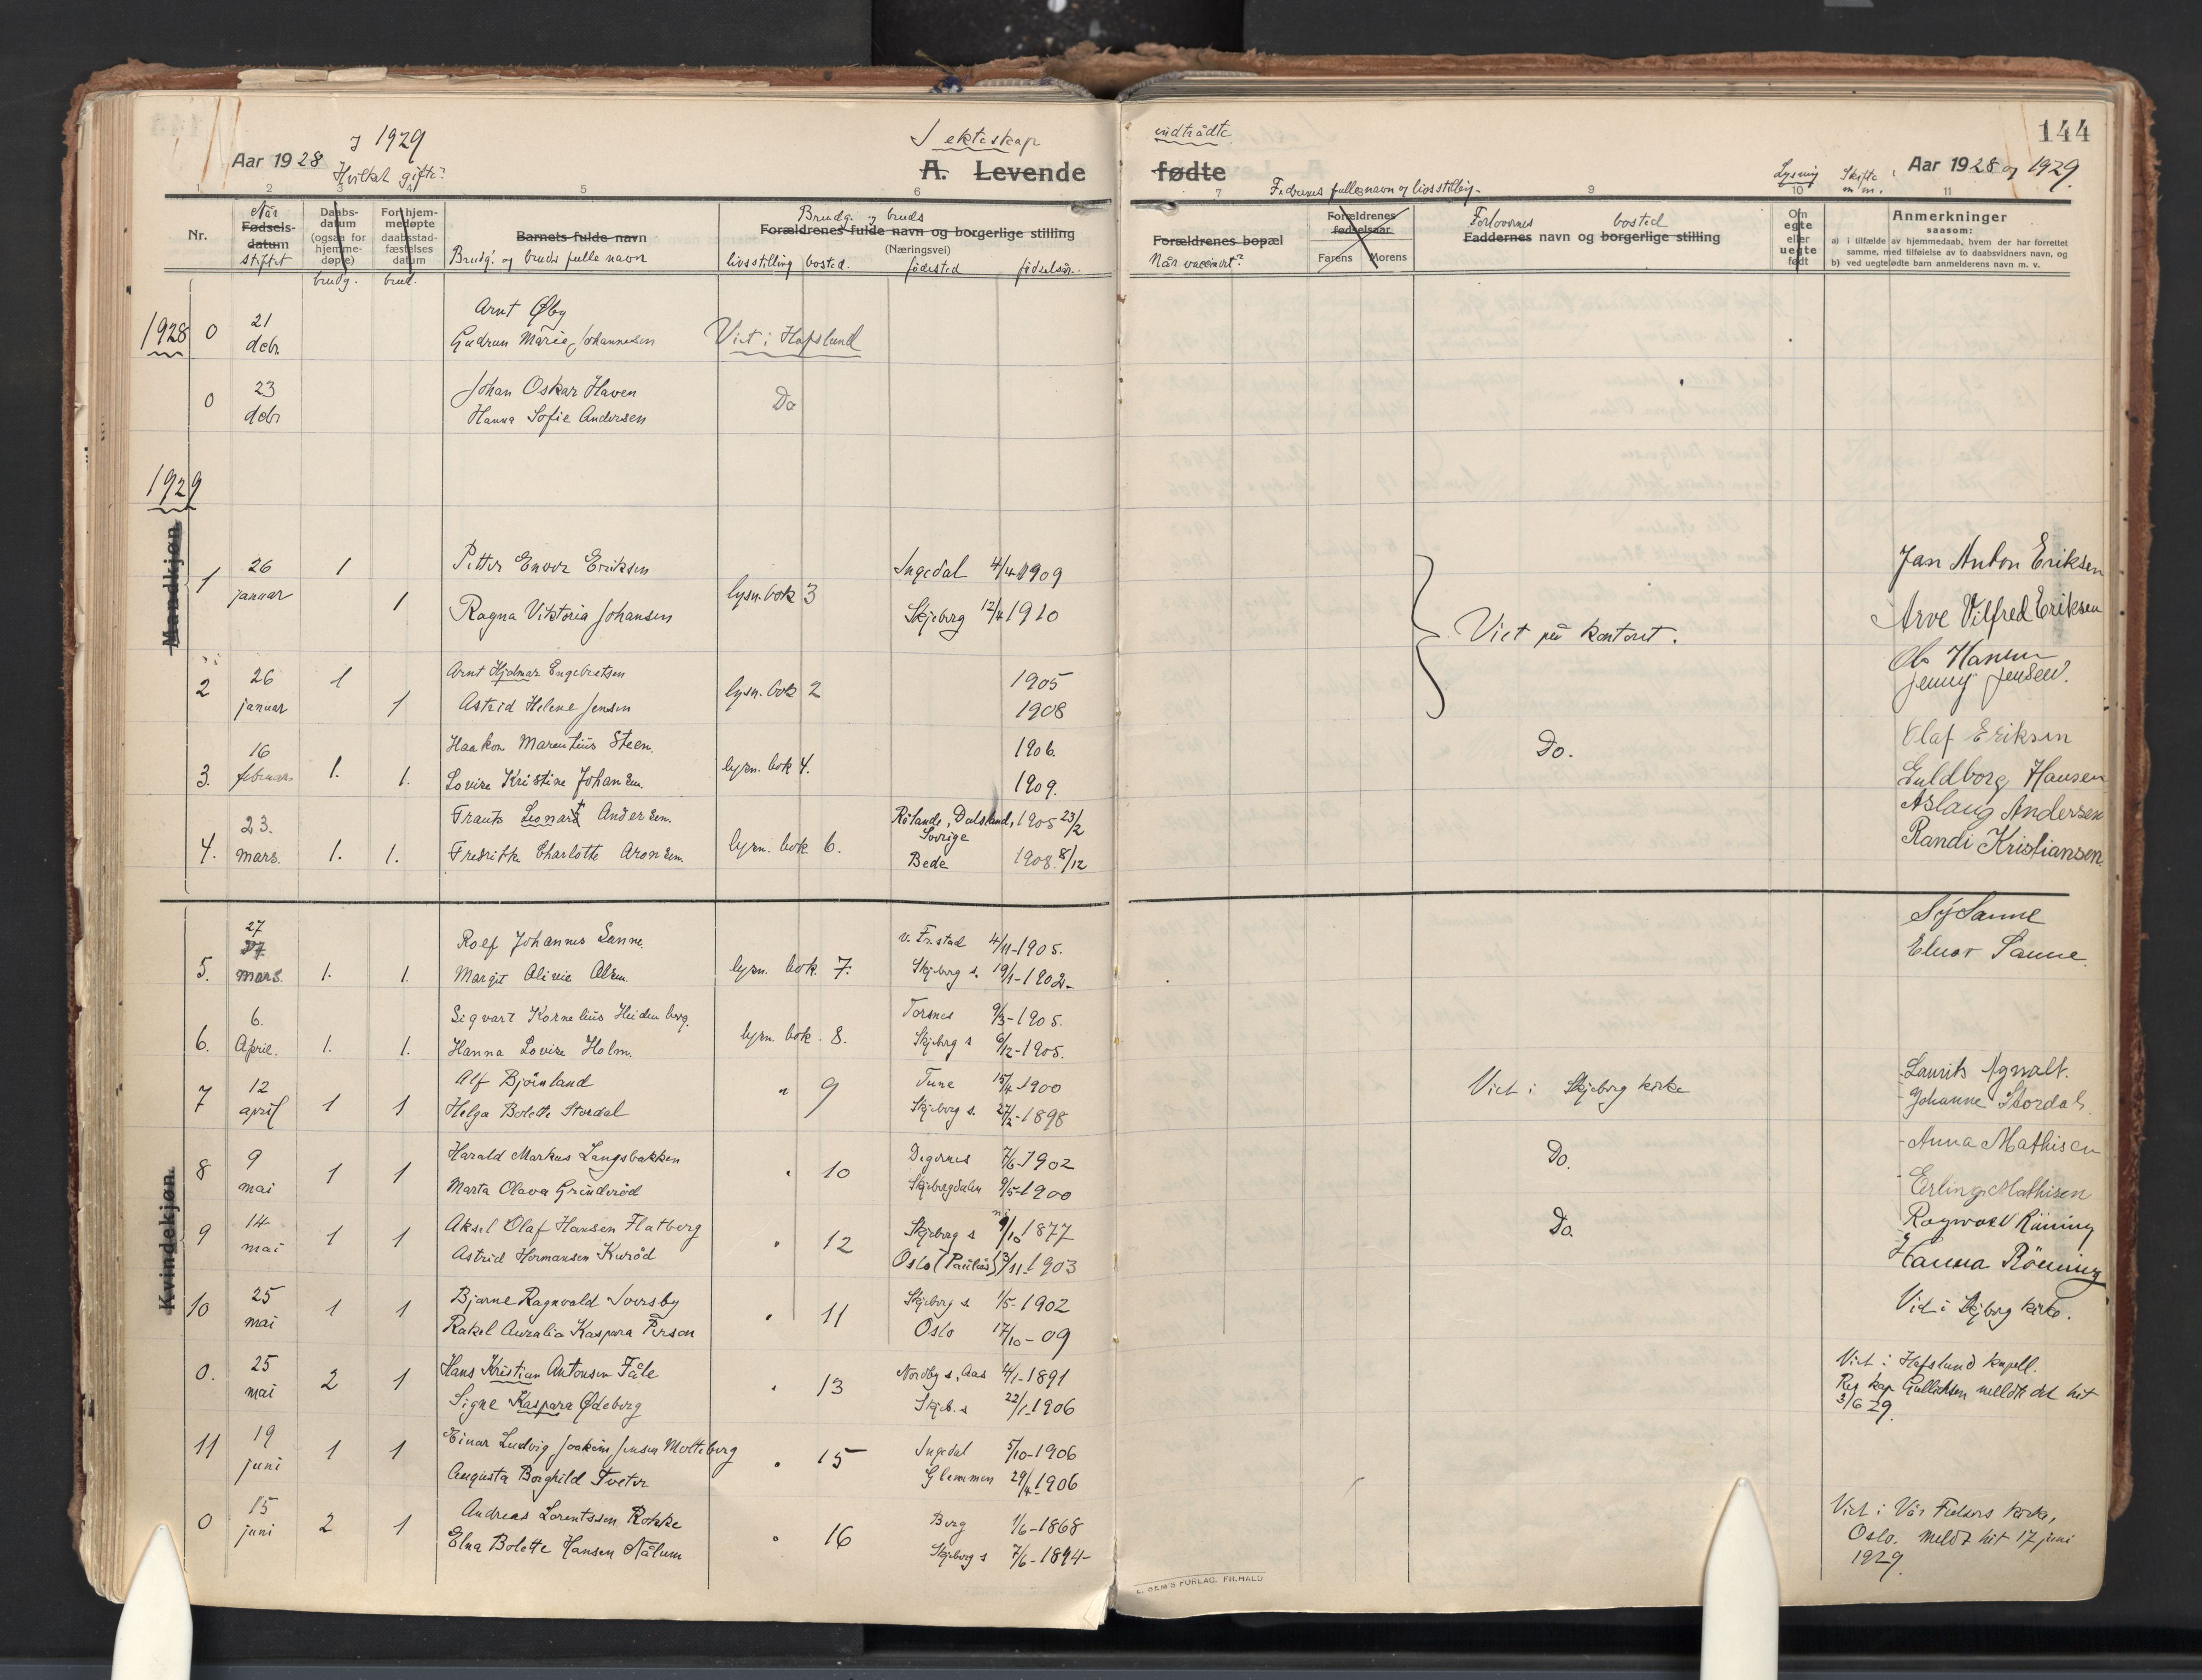 144
Aar 1928 og 1929
Hvilket gifte?
I ekteskap
indtrådte
A. Levende
fødte
Lysning
Skifte m.m.
Aar 1928 og 1929.
1 2 3 4 5 6 7 9 10 11
Fedrenes fulle navn og livsstilling
Nr.
Når
Fødsels-
datum
stiftet
Daabs-
datum
(ogsaa for
hjemme-
døpte)
brudg.
For hjem-
medøpte
daabsstad-
fæstelses
datum
brud.
Barnets fulde navn
Brudg. og bruds fulle navn
Brudg. og bruds
Forældrenes fulde navn og borgerlige stilling
(Næringsvei)
livsstilling bosted. fødested fødselsår.
Forældrenes bopæl
Når vaccinert?
Forældrenes
fødselsaar
Farens Morens
Forlovernes bosted
Faddernes navn og borgerlige stilling
Om
egte
eller
uegte
født
Anmerkninger
saasom:
a) i tilfælde av hjemmedaab, hvem der har forrettet
samme, med tilføielse av to daabsvidners navn, og
b) ved uegtefødte barn anmelderens navn m. v.
1928 0 21 debr
Arnt Øby
Gudrun Marie Johannesen
Viet i Hafslund
0 23 debr
Johan Oskar Haven
Hanna Sofie Andersen
Do
1929
Mandkjøn.
1 26 januar 1 1
Petter Enver Eriksen Ingedal 4/4 1909
lysn. bok 3
Ragna Viktoria Johansen Skjeberg 12/4 1910
Viet på kontoret.
Jan Anton Eriksen
Arve Vilfred Eriksen
2 26 januar 1 1
Arnt Hjalmar Engebretsen 1905
lysn. bok 2
Astrid Helene Jensen 1908
Ole Hansen
Jenny Jensen.
3. 16 februar 1. 1.
Haakon Marentius Steen. 1906.
lysn. bok 4.
Lovise Kristine Johansen. 1909.
Do.
Olaf Eriksen
Guldborg Hansen
4. 23. mars. 1. 1.
Frants Leonart Andersen. Rölanda, Dalsland, Sverige 1905 23/2
lysn. bok 6.
Fredrikke Charlotte Aronsen. Bede 1908. 8/12
Aslaug Andersen
Randi Kristiansen.
5. 27 mars. 1. 1.
Rolf Johannes Sanne. v. Fr.stad 4/11-1905.
lysn. bok. 7.
Margit Olivie Olsen. Skjeberg s. 19/1-1902-
Sanne
Elnar Sanne.
6. 6. April. 1. 1.
Sigvart Kornelius Heidenberg. Torsnes 9/3-1905.
lysn. bok. 8.
Hanna Lovise Holm. Skjeberg s 6/12-1905.
7 12 april 1 1
Alf Bjørnland Tune 15/4 1900
" 9
Helga Bolette Stordal Skjeberg s. 27/2-1898
Viet i Skjeberg kirke
Laurits Agnalt.
Johanne Stordal.
8 9 mai 1 1
Harald Markus Langsbakken Degernes 7/6-1902
" 10
Marta Olava Grinderød Skjebergdalen 9/5-1900
Do.
Anna Mathisen
Erling Mathisen
9 14 mai 1 1
Aksel Olaf Hansen Flatberg Skjeberg s 9/10 1877
" 12
Astrid Hermansen Kurød Oslo (Paulus) 13/11-1903
Do.
Ragnvald Rönning
Hanna Rönning
Kvindekjøn.
10 25 mai 1 1
Bjarne Ragnvald Iversby Skjeberg s. 1/5-1902
" 11
Rakel Auralia Kaspara Person Oslo 17/10-09
Viet i Skjeberg kirke.
0. 25 mai 2 1
Hans Kristian Antonsen Fåle Nordby s, Aas 4/1-1891
" 13
Signe Kaspara Ødeberg Skjeb. s 22/1-1906
Viet i Hafslund kapell.
Res kap Gullichsen meldte det hit
3/6 29.
11 19 juni 1 1
Einar Ludvig Joakim Jensen Molteberg Ingedal 5/10-1906
" 15
Augusta Borghild Tveter Glemmen 29/4-1906
0 15 juni 2 1
Andreas Lorentssen Rokke Berg 1/6-1868
" 16
Elna Bolette Hansen Nålum Skjeberg s 7/6-1894-
Viet i Vår Frelsers kirke,
Oslo. Meldt hit 17 juni
1929.
E. SEM'S FORLAG. FR.HALD